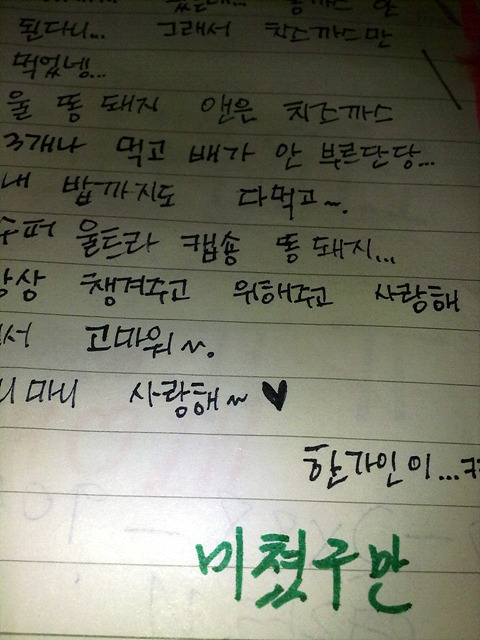 된다니... 그래서 치즈까스만
먹었넹...
울 똥 돼지 앤은 치즈까스
3개나 먹고 배가 안 부르단당...
내 밥까지도 다먹고~.
수퍼 울트라 캡숑 똥 돼지...
항상 챙겨주고 위해주고 사랑해
서 고마워~.
마니 사랑해~ ♥
한가인이...ㅋ
미쳤구만